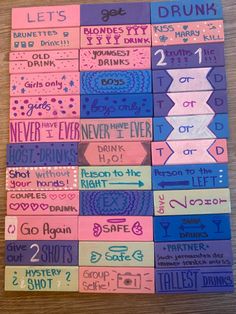 LET'S get DRUNK
BRUNETTES Drink!!!
BLONDES DRINK
KISS MARRY KILL
OLD DRINK
YOUNGEST DRINKS
2 truths 1 lie
Girls only
Boys only
T or D
girls only
boys only
T or D
NEVER HAVE I EVER
NEVER HAVE I EVER
T or D
HOST DRINKS
DRINK H2O!
T or D
Shot without your hands!
Person to the RIGHT
Person to the LEFT
COUPLES DRINK
EX
GIVE 2 SHOTS
Go Again
SAFE
DRINKS
Give out 2 SHOTS
Safe
PARTNER
MYSTERY SHOT
Group Selfie!
TALLEST DRINKS